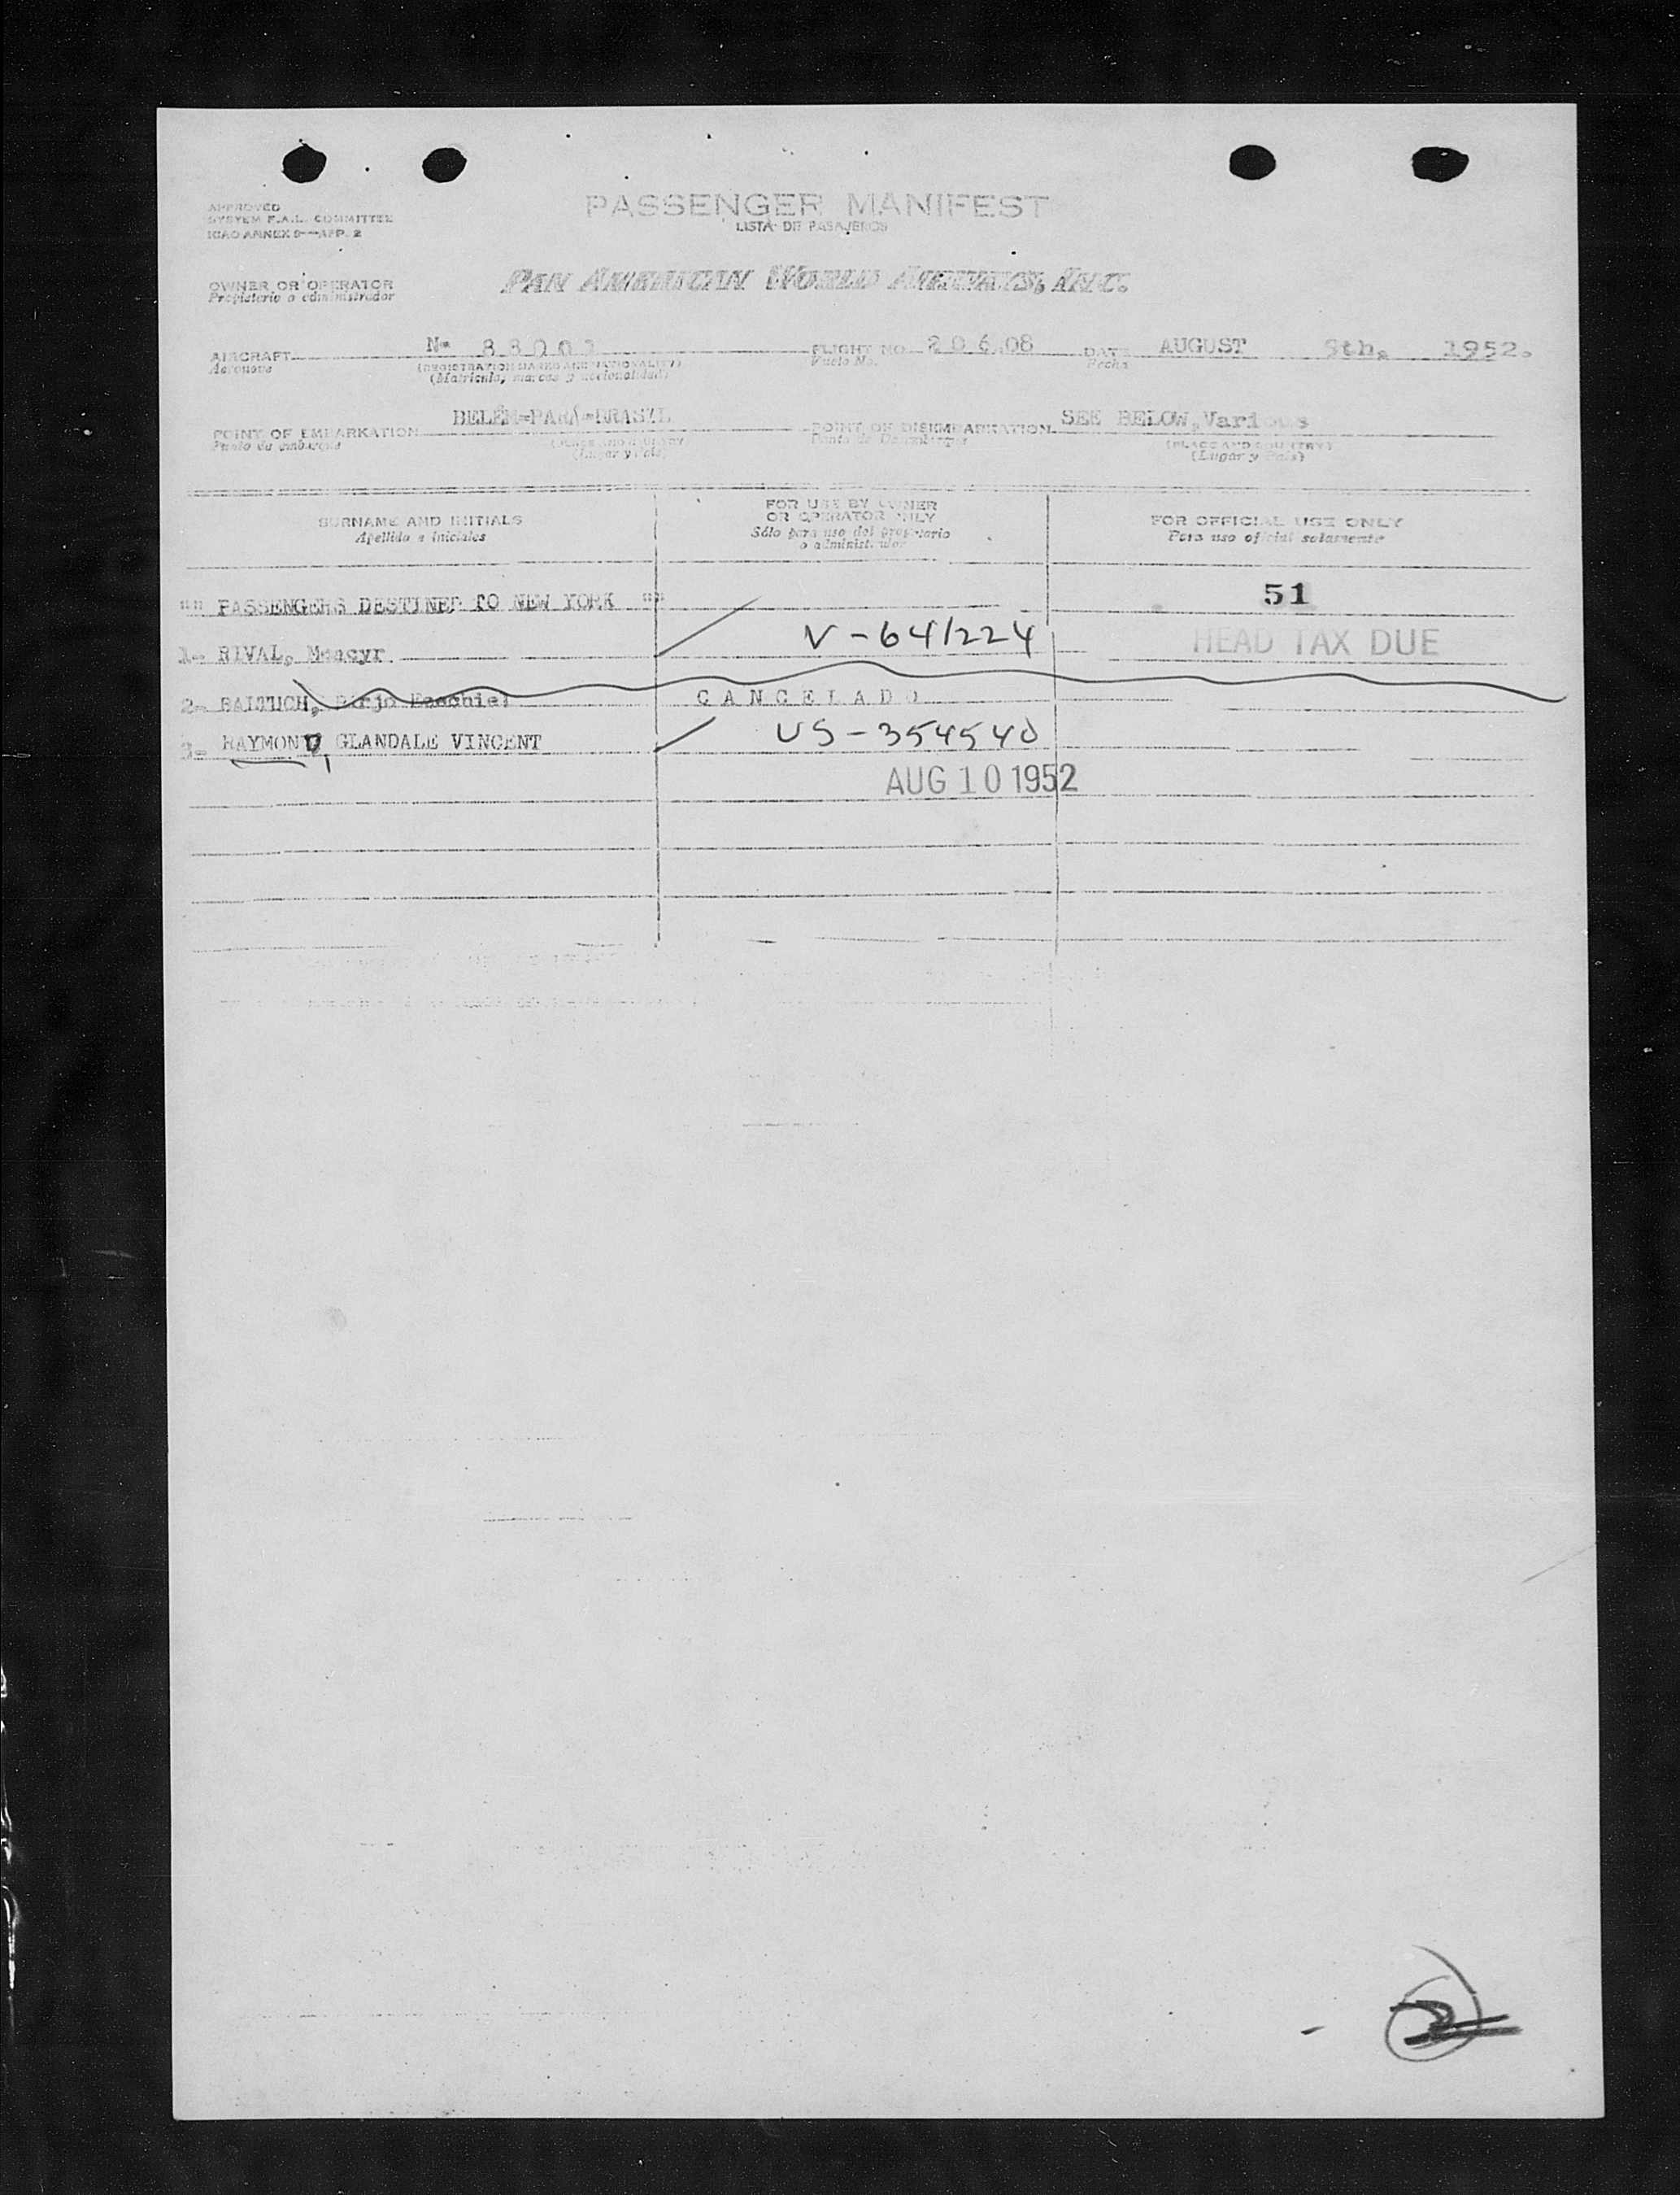 APPROVED
SYSTEM F.A.L. COMMITTEE
ICAO ANNEX 9—APP. 2
PASSENGER MANIFEST
LISTA DE PASAJEROS
OWNER OR OPERATOR
Propietario o administrador
PAN AMERICAN WORLD AIRWAYS, INC.
AIRCRAFT Nº FLIGHT NO. 206.08 DATE AUGUST 1952.
Aeronave (REGISTRATION MARKS AND NATIONALITY) Vuelo No. Fecha
(Matrícula, marcas y nacionalidad)
POINT OF EMBARKATION BELÉM-PARÁ-BRASIL POINT OF DISEMBARKATION SEE BELOW, Various
Punto de embarque (PLACE AND COUNTRY) Punto de Desembarque (PLACE AND COUNTRY)
(Lugar y País) (Lugar y País)
SURNAME AND INITIALS FOR USE BY OWNER OR OPERATOR ONLY FOR OFFICIAL USE ONLY
Apellido e iniciales Sólo para uso del propietario o administrador Para uso oficial solamente
"" PASSENGERS DESTINED TO NEW YORK "" 51
1- RIVAL, Moacyr V-641224 HEAD TAX DUE
2- Ezechiel CANCELADO
3- RAYMOND, GLANDALE VINCENT US-354540
AUG 10 1952
2